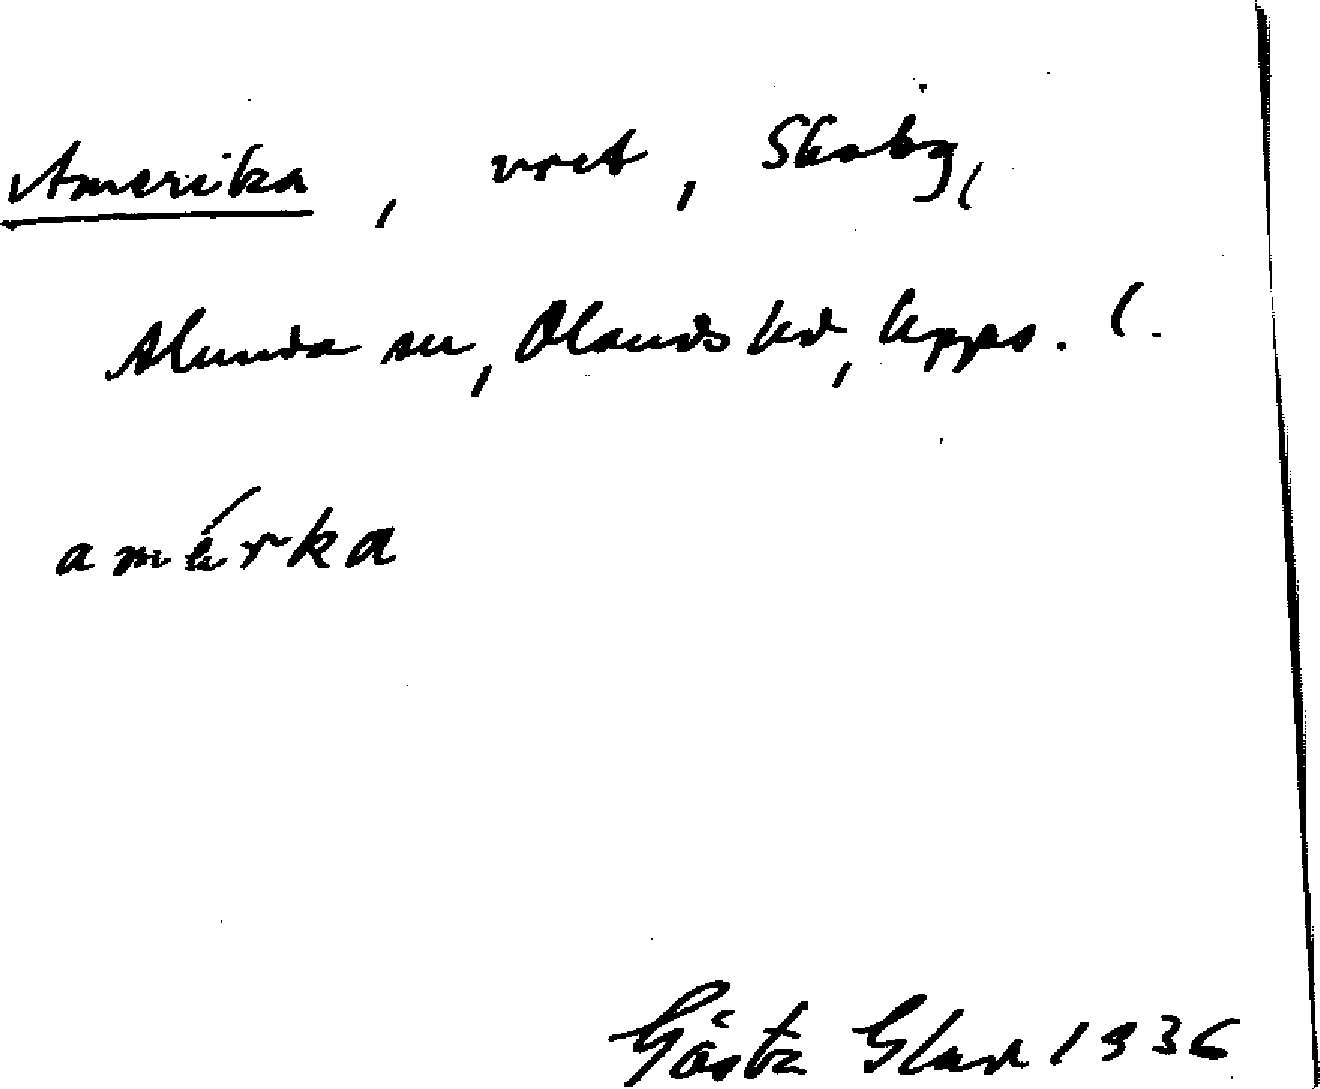 Amerika, vret, Skoby,
Alunda sn, Olands hd, Upps. l.
amérka
Gösta 1936